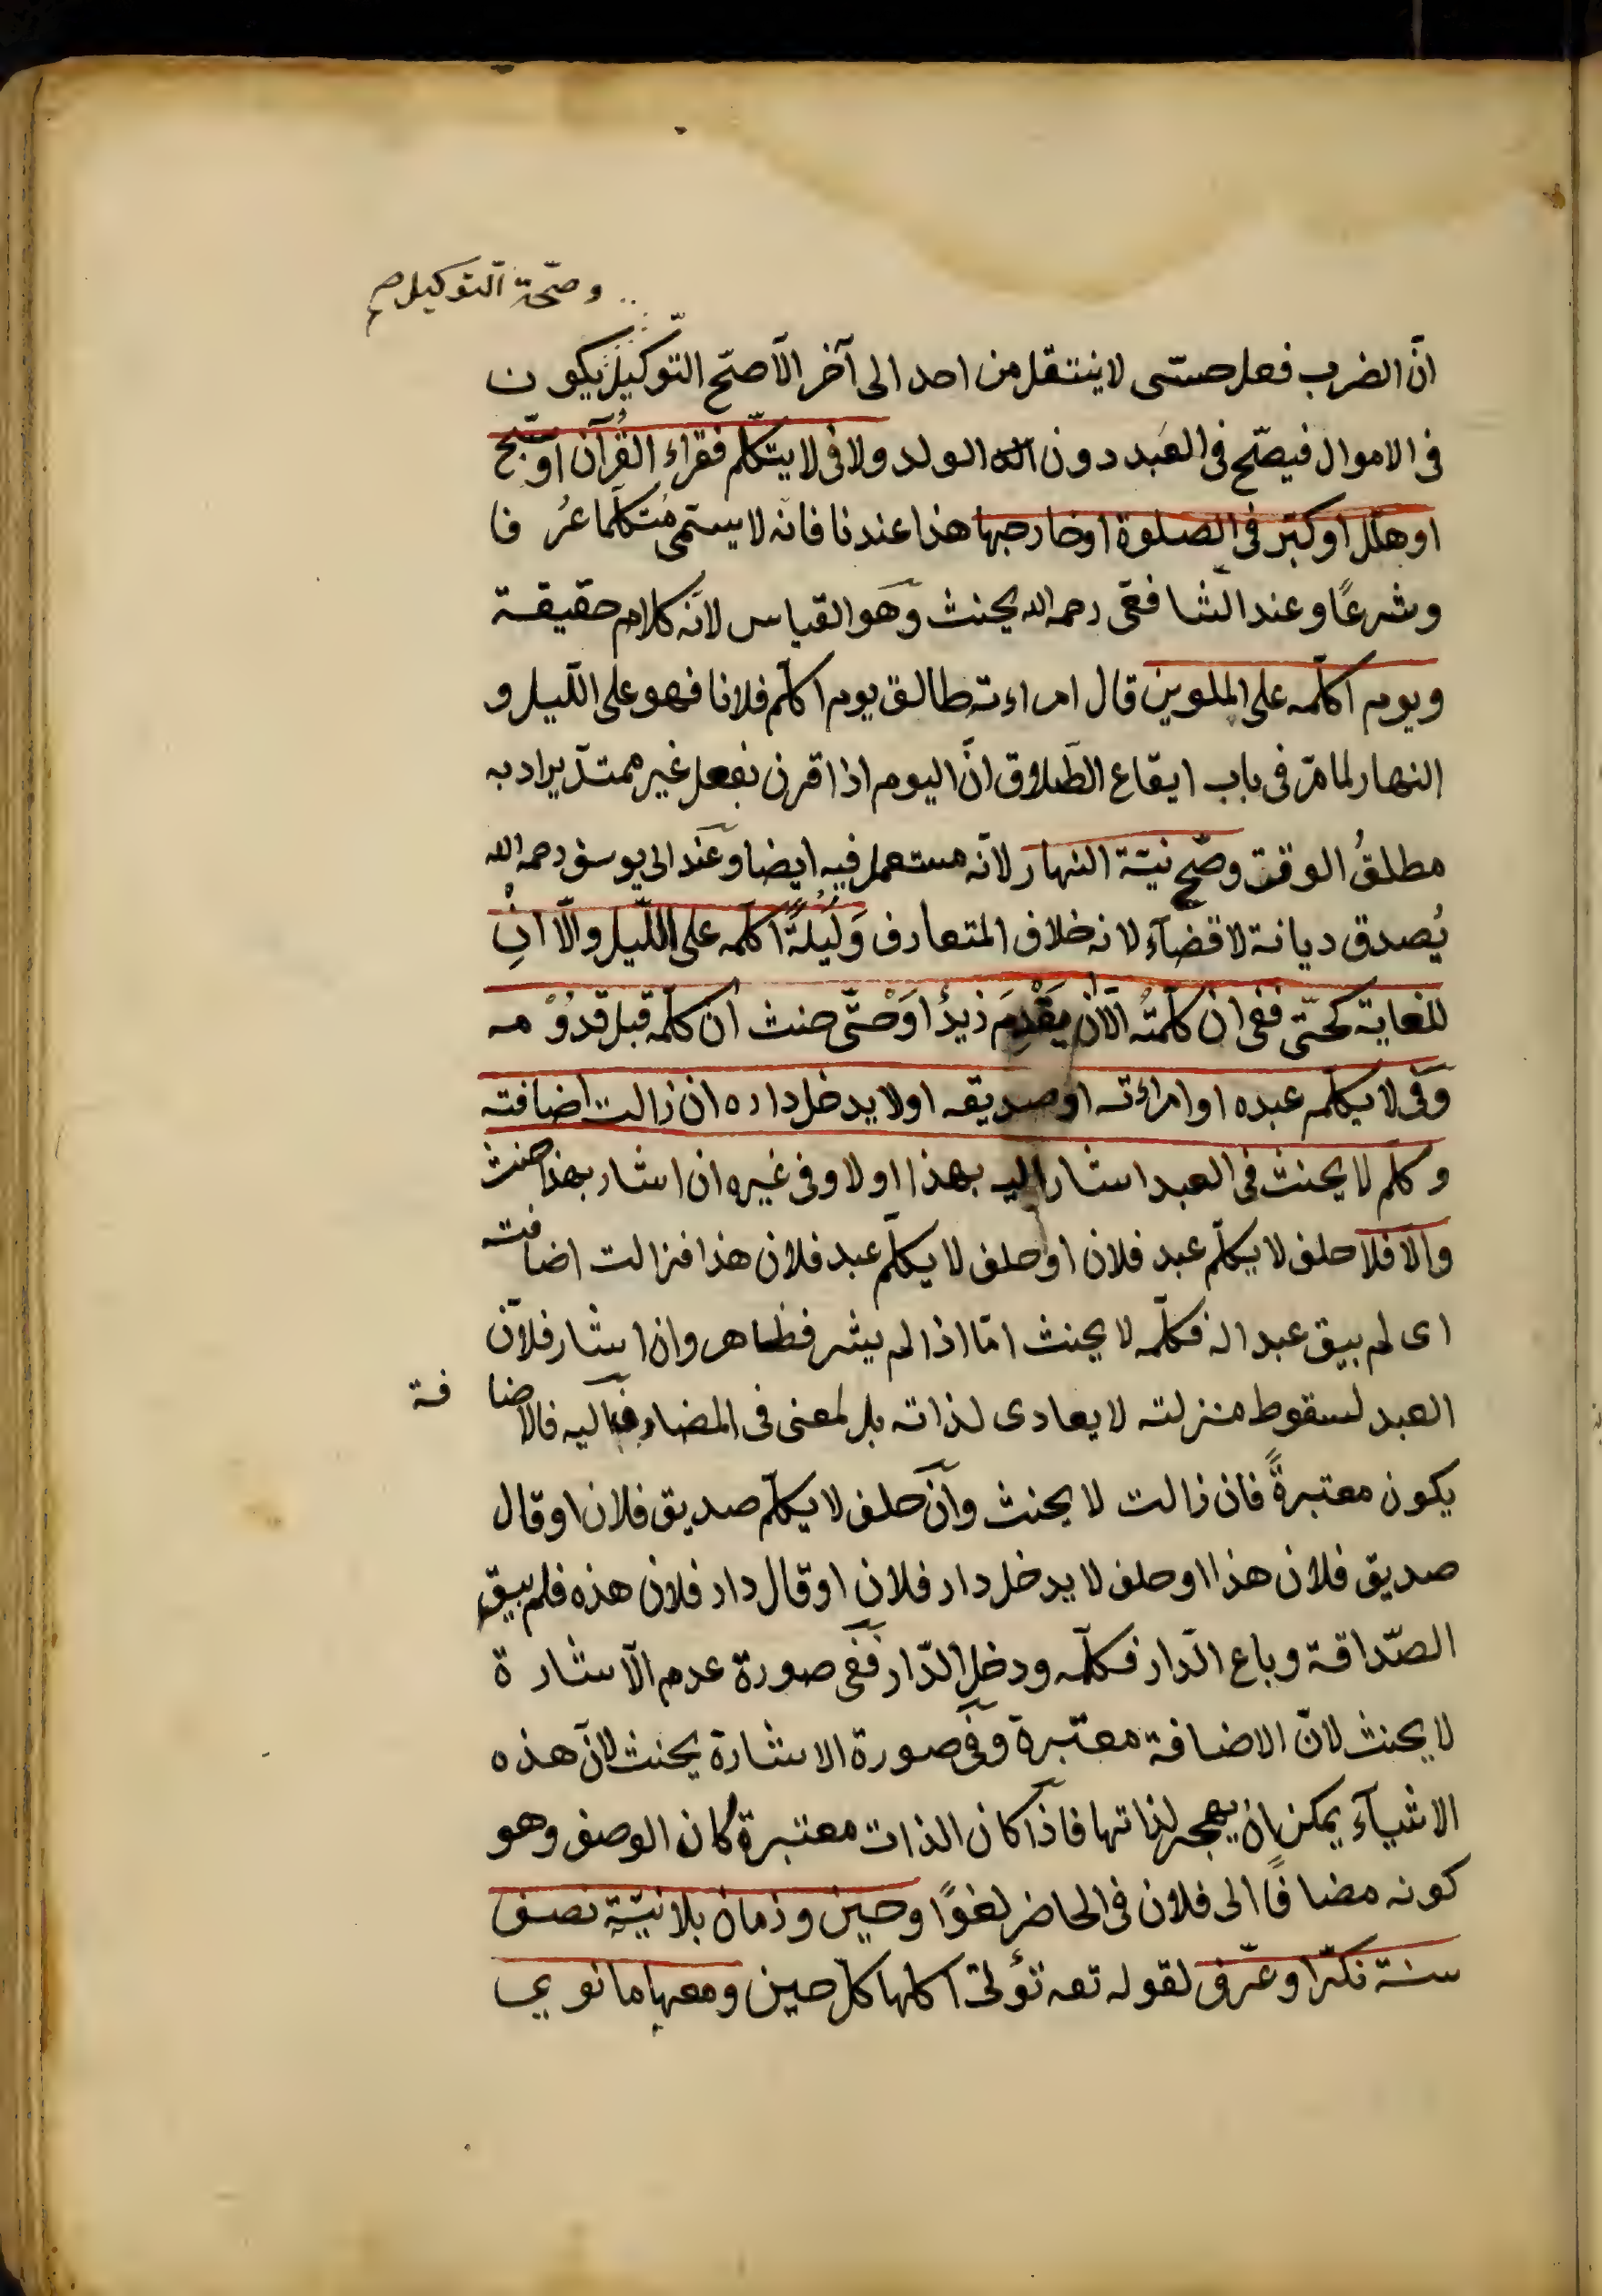 وصحّة التوكيل صح
انّ الضرب فعل حسّى لا ينتقل من احد الى آخر الّا صحّ التوكيل يكون
فى الاموال فيصحّ فى العبد دون الولد ولا فى لا يتكلّم فقراء القُرآن او سبّح
او هلّل او كبّر فى الصلوة او خارجها هذا عندنا فانه لا يسمّى مُتكلّما عُرفا
وشرعًا وعند الشافعى رحمه الله يحنث وهو القياس لانّه كلام حقيقة
ويوم اكلّمه على الملوين قال امراءته طالق يوم اكلّم فلانا فهو على اللّيل و
النهار لما مرّ فى باب ايقاع الطّلاق انّ اليوم اذا قرن بفعل غير ممتدّ يراد به
مطلقُ الوقت وصحّ نيّة النهار لانّه مستعمل فيه ايضا وعند ابى يوسف رحمه الله
يُصدق ديانة لا قضاءً لانه خلاف المتعارف وَلَيْلَةً اكلّمه على اللّيل والّا انْ
للغاية كحتّى ففى ان كلّمتُه الّا ان يَقْدِمَ زيدٌ اوَحتَّى حنث ان كلّمه قبل قدُوْمه
وَفى لا يكلّمه عبده او امراءته او صديقه او لا يدخل داره ان زالت اضافته
وكلّم لا يحنث فى العبد اشار اليه بهذا اولا وفى غيره ان اشار بهذا حنث
والّا فلا حلف لا يكلّم عبد فلان او حلف لا يكلّم عبد فلان هذا فزالت اضافته
اى لم يبق عبدا له فكلّمه لا يحنث امّا اذا لم يشر فظاهر وان اشار فلانّ
العبد لسقوط منزلته لا يعادى لذاته بل لمعنى فى المضاف اليه فالاضافة
يكون معتبرةً فان زالت لا يحنث وان حلف لا يكلّم صديق فلان او قال
صديق فلان هذا او حلف لا يدخل دار فلان او قال دار فلان هذه فلم يبق
الصّداقة وباع الدّار فكلّمه ودخل الدّار ففى صورة عدم الاشارة
لا يحنث لانّ الاضافة معتبرة وفى صورة الاشارة يحنث لانّ هذه
الاشياء يمكن ان يهجر لذاتها فاذا كان الذات معتبرة كان الوصف وهو
كونه مضافًا الى فلان فى الحاضر لغوًا وحين وزمان بلا نيّة نصف
سنة نكّر او عرّف لقوله تعه تؤتى اكلها كلّ حين ومعها ما نوي